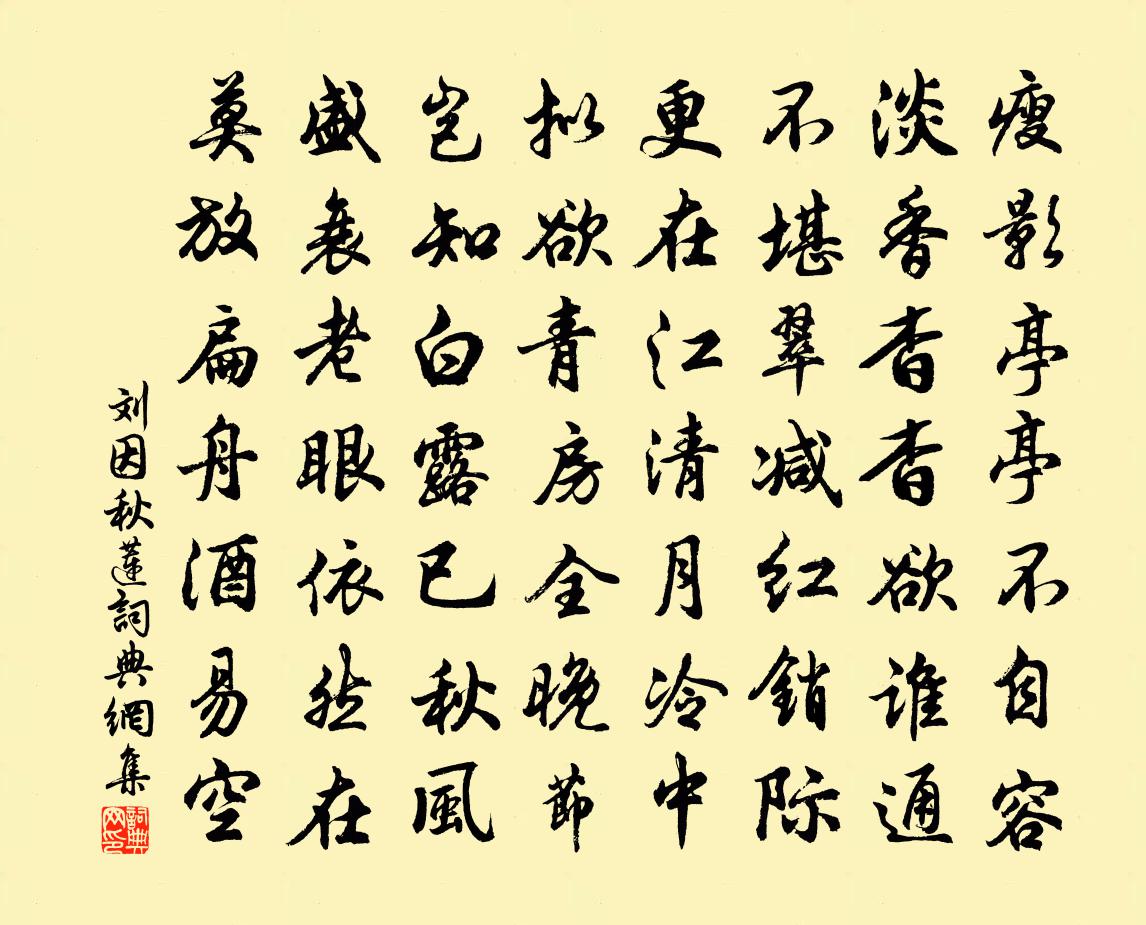 瘦影亭亭不自容
淡香杳杳欲谁通
不堪翠减红銷际
更在江清月冷中
拟欲青房全晚節
岂知白露已秋風
盛衰老眼依然在
莫放扁舟酒易空
刘因秋蓮詞典網集
詞典网印